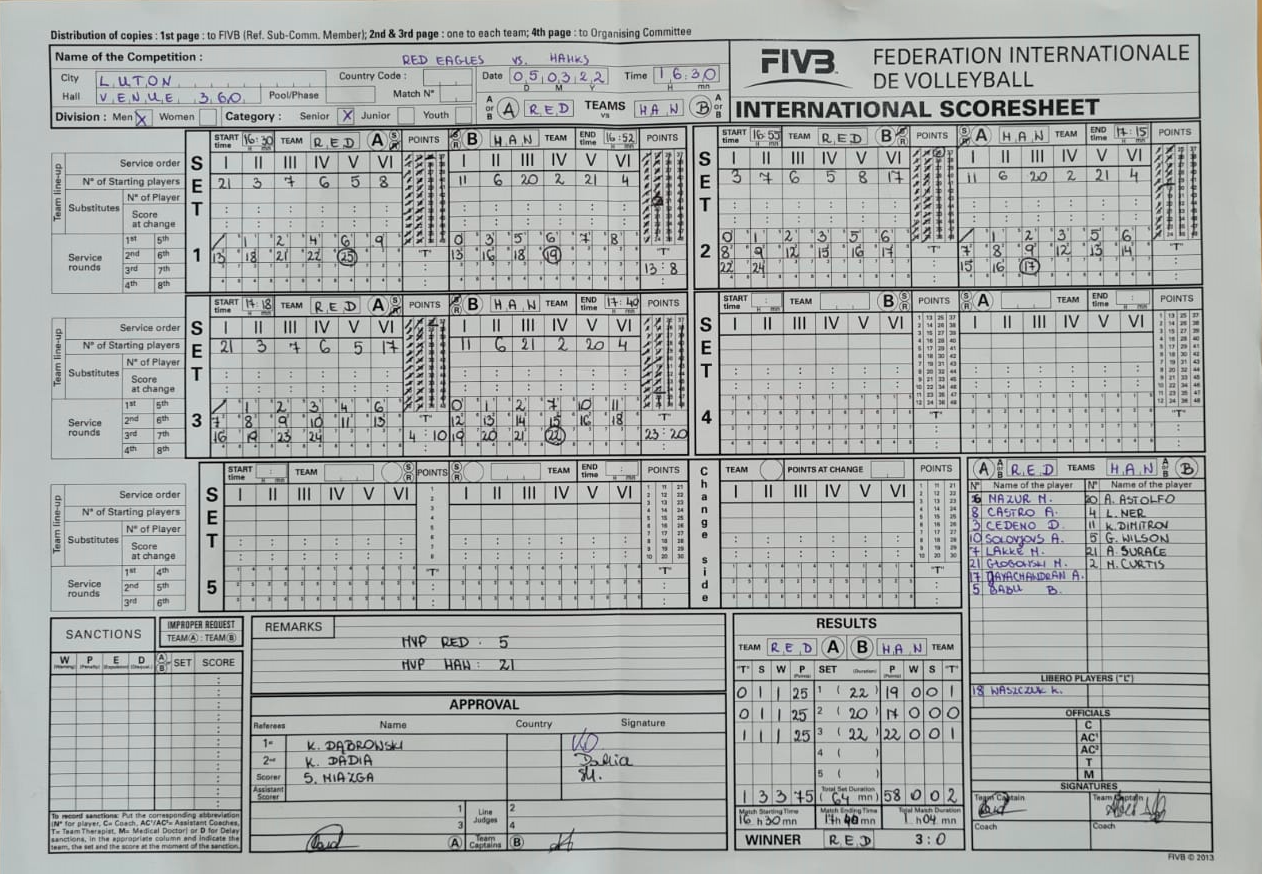 Distribution of copies : 1st page : to FIVB (Ref. Sub-Comm. Member); 2nd & 3rd page : one to each team; 4th page : to Organising Committee
Name of the Competition : RED EAGLES VS. HAWKS
City LUTON Country Code : Date 05 03 22 Time 16:30
Hall VENUE 360 Pool/Phase Match N° A or B A RED TEAMS vs HAW B A or B
Division : Men X Women Category : Senior X Junior Youth
FIVB FEDERATION INTERNATIONALE DE VOLLEYBALL
INTERNATIONAL SCORESHEET
SET 1
START time 16:30 TEAM RED A S R POINTS B HAW TEAM END time 16:52 POINTS
Team line-up
Service order I II III IV V VI I II III IV V VI
N° of Starting players 21 3 7 6 5 8 11 6 20 2 21 4
Substitutes N° of Player
Score at change
Service rounds
1st 5th 1 2 4 6 9 0 3 5 6 7 8
2nd 6th 13 18 21 22 25 "T" 13 16 18 19 "T"
3rd 7th 13:8
4th 8th
SET 2
START time 16:55 TEAM RED B S R POINTS A HAW TEAM END time 17:15 POINTS
I II III IV V VI I II III IV V VI
3 7 6 5 8 17 11 6 20 2 21 4
0 1 2 3 5 6 1 2 3 5 6
8 9 12 15 16 17 "T" 7 8 9 12 13 14 "T"
22 24 15 16 17
SET 3
START time 17:18 TEAM RED A S R POINTS B HAW TEAM END time 17:40 POINTS
Team line-up
Service order I II III IV V VI I II III IV V VI
N° of Starting players 21 3 7 6 5 17 11 6 21 2 20 4
Substitutes N° of Player
Score at change
Service rounds
1st 5th 1 2 3 4 6 0 1 2 7 10 11
2nd 6th 7 8 9 10 11 13 12 13 14 15 16 18
3rd 7th 16 19 23 24 4:10 19 20 21 22 23:20
4th 8th
SET 4
START time TEAM B S R POINTS S R A TEAM END time POINTS
I II III IV V VI I II III IV V VI
"T" "T"
SET 5
START time TEAM S R POINTS S R TEAM END time POINTS
Team line-up
Service order I II III IV V VI I II III IV V VI
N° of Starting players
Substitutes N° of Player
Score at change
Service rounds
1st 4th "T" "T"
2nd 5th
3rd 6th
Change side
TEAM POINTS AT CHANGE POINTS
I II III IV V VI
"T"
A or B A RED TEAMS HAW B A or B
N° Name of the player N° Name of the player
MAZUR M. 20 A. ASTOLFO
8 CASTRO A. 4 L. NER
3 CEDENO D. 11 K. DIMITROV
10 SOLOVJOVS A. 5 G. WILSON
7 LAKKE M. 21 A. SURACE
21 GŁOGOWSKI M. 2 M. CURTIS
17 JAYACHANDRAN A.
5 BABU B.
LIBERO PLAYERS ("L")
18 WASZCZUK K.
OFFICIALS
C
AC¹
AC²
T
M
SIGNATURES
Team Captain Team Captain
Coach Coach
SANCTIONS
IMPROPER REQUEST
TEAM A : TEAM B
W P E D A B SET SCORE
(Warning) (Penalty) (Expulsion) (Disqual.)
To record sanctions: Put the corresponding abbreviation (N° for player, C= Coach, AC¹/AC²= Assistant Coaches, T= Team Therapist, M= Medical Doctor) or D for Delay sanctions, in the appropriate column and indicate the team, the set and the score at the moment of the sanction.
REMARKS
MVP RED : 5
MVP HAW : 21
APPROVAL
Referees Name Country Signature
1st K. DĄBROWSKI
2nd K. DADIA Dadia
Scorer S. MIAZGA
Assistant Scorer
1 3 Line Judges 2 4
A Team Captains B
RESULTS
TEAM RED A B HAW TEAM
"T" S W P (Points) SET (Duration) P (Points) W S "T"
0 1 1 25 1 (22) 19 0 0 1
0 1 1 25 2 (20) 17 0 0 0
1 1 1 25 3 (22) 22 0 0 1
4 ( )
5 ( )
1 3 3 75 Total Set Duration (64 mn) 58 0 0 2
Match Starting Time Match Ending Time Total Match Duration
16 h 30 mn 17 h 40 mn 1 h 04 mn
WINNER RED 3:0
FIVB © 2013